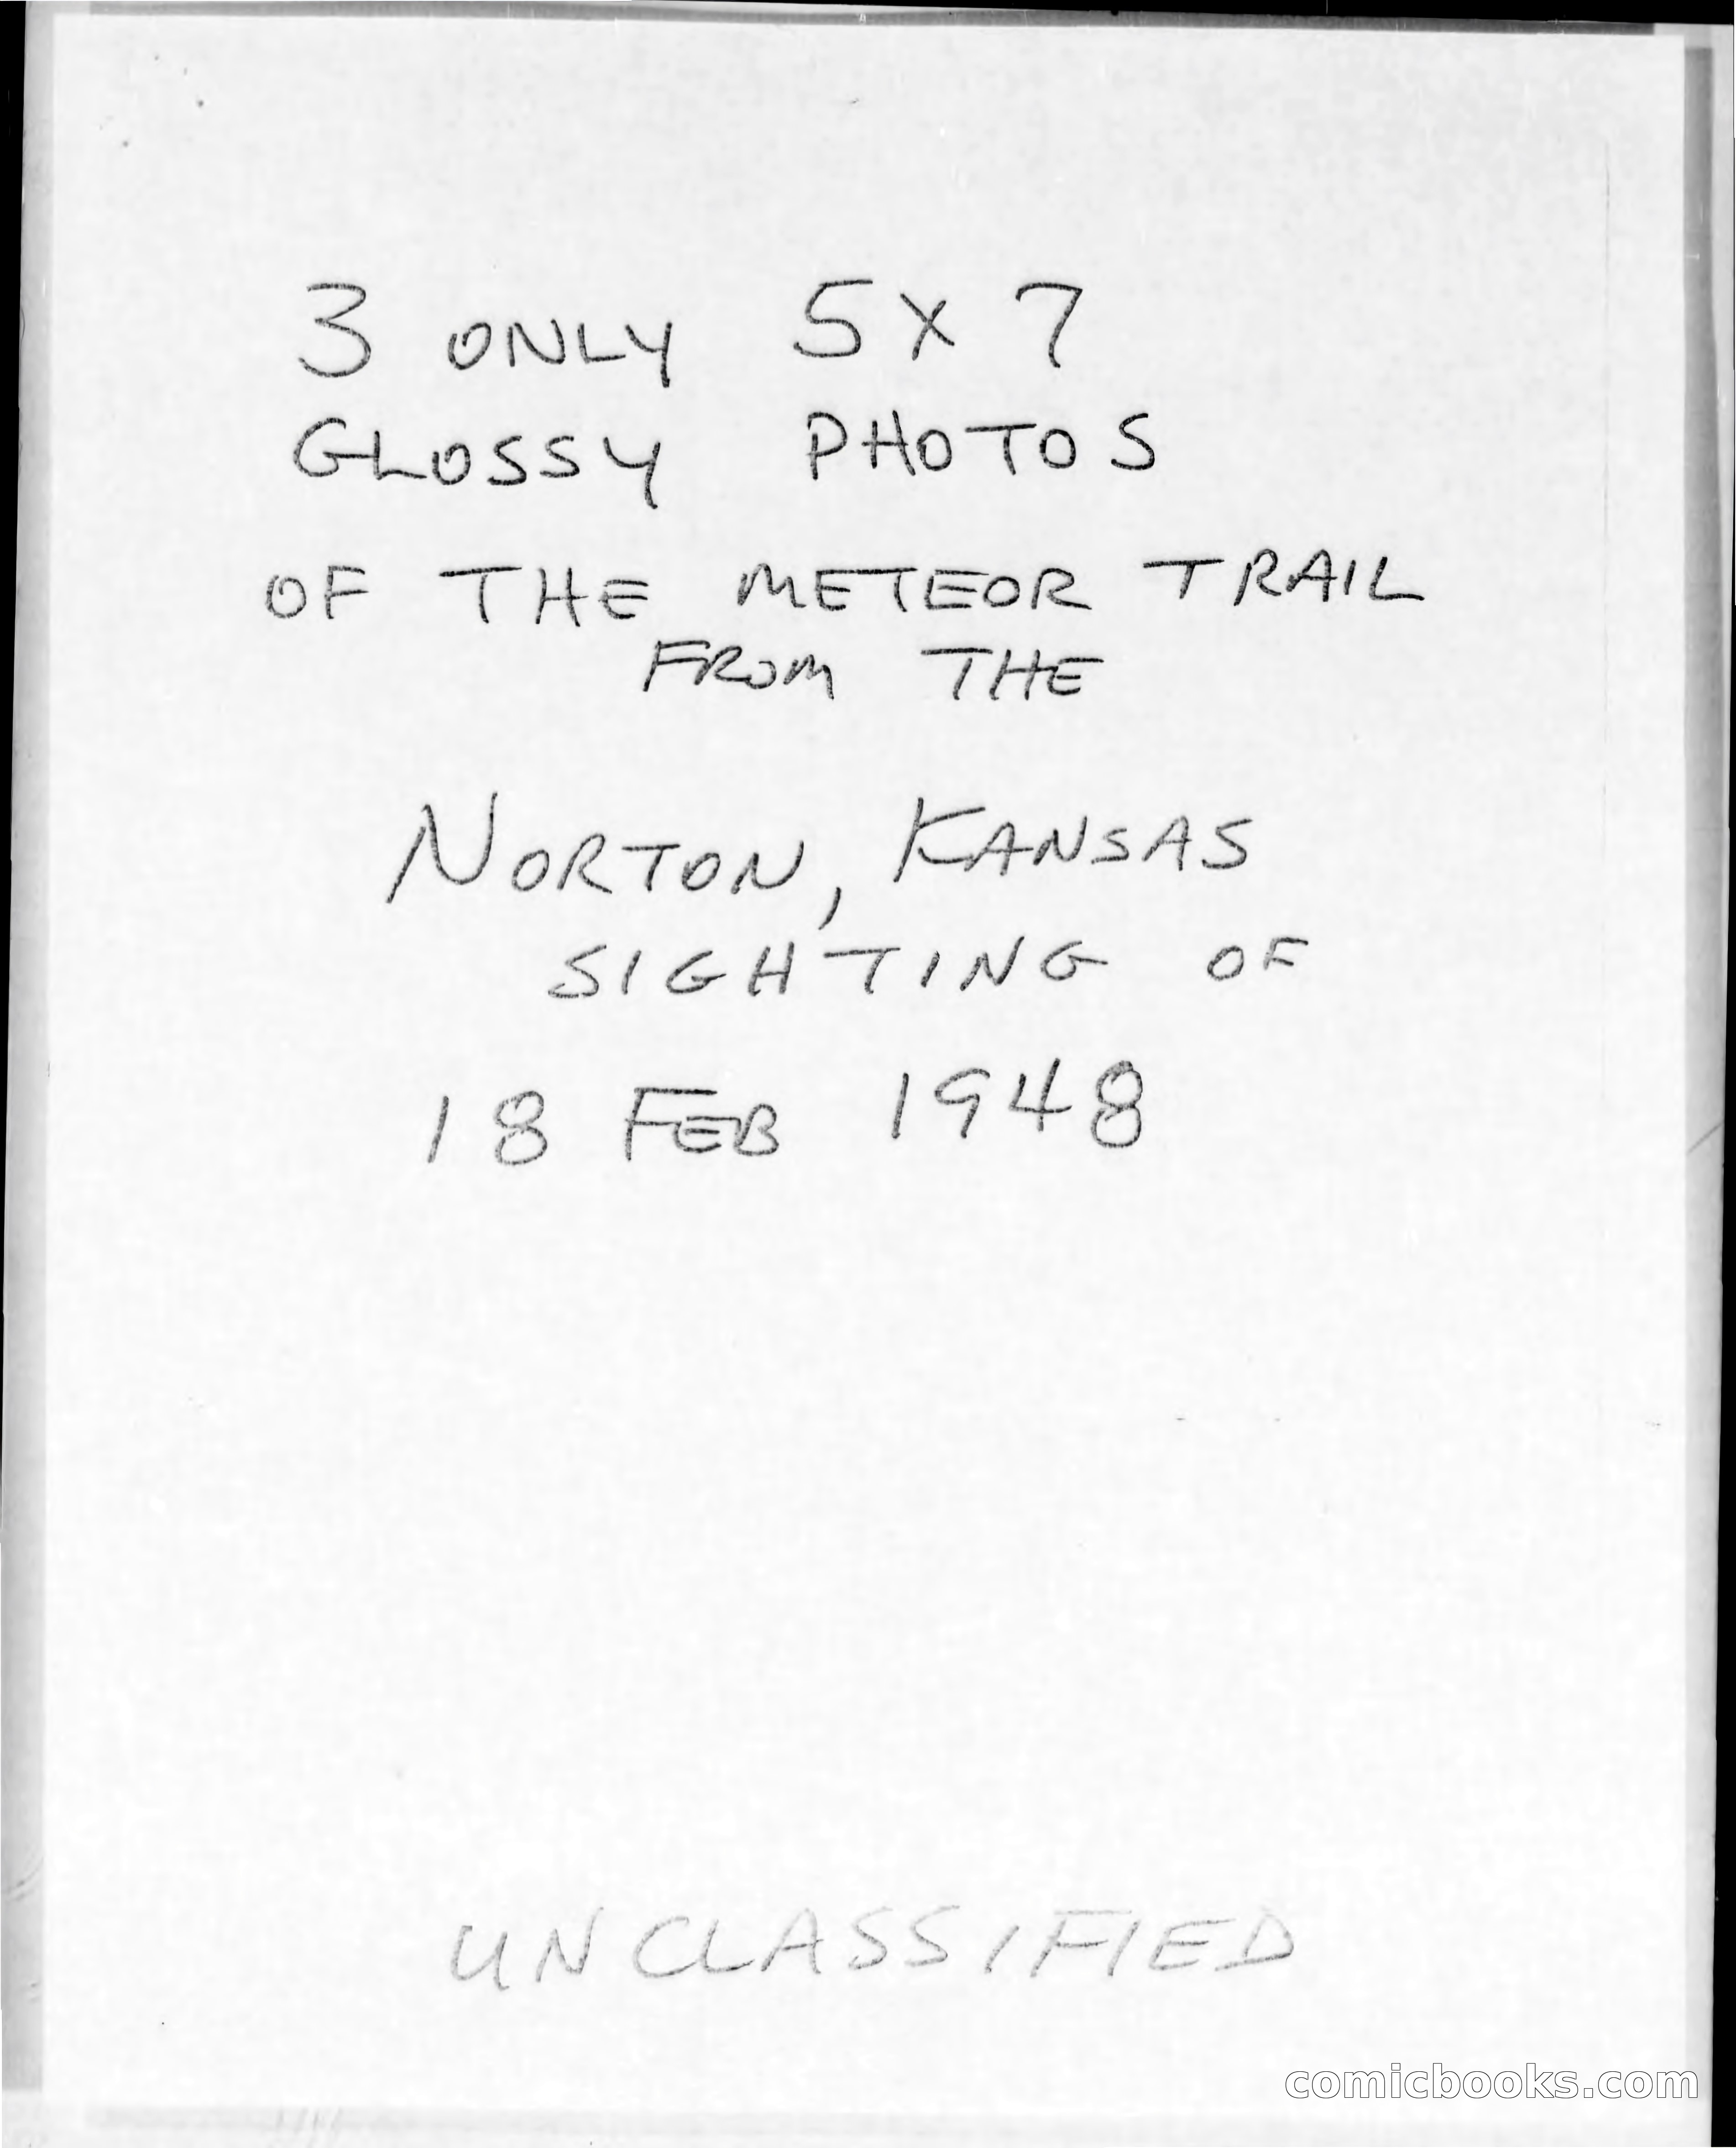 3 ONLY 5 X 7
GLOSSY PHOTOS
OF THE METEOR TRAIL
FROM THE
NORTON, KANSAS
SIGHTING OF
18 FEB 1948
UNCLASSIFIED
comicbooks.com